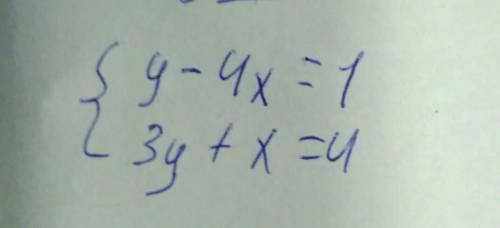 y - 4x = 1
3y + x = 4